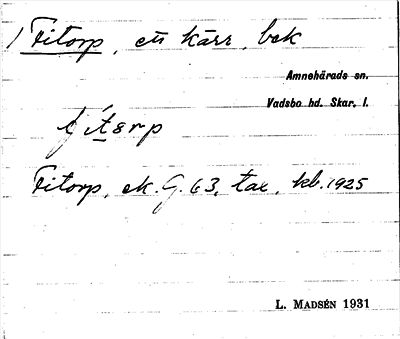 1) Fitorp, ett kärr, bek
Amnehärads sn.
Vadsbo hd. Skar. l.
fítɜrp
Fitorp, ek. G. 63, tax. kb. 1925
L. MADSÉN 1931